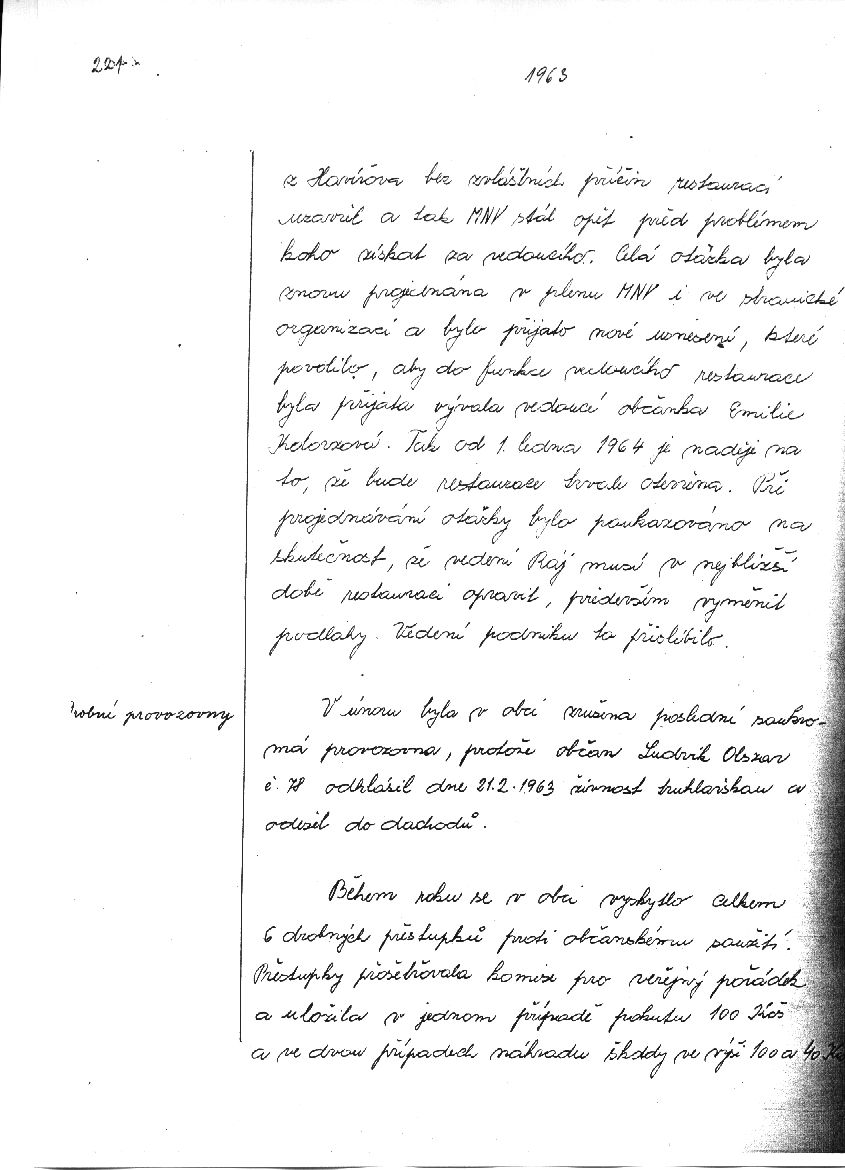 221
1963
z Havířova bez zvláštních příčin restauraci
uzavřil a tak MNV stál opět před problémem
koho získat za vedoucího. Celá otázka byla
znovu projednána v plenu MNV i ve stranické
organizaci a bylo přijato nové usnesení, které
povolilo, aby do funkce vedoucího restaurace
byla přijata vývala vedoucí občanka Emilie
Kolorzová. Tak od 1. ledna 1964 je naděje na
to, že bude restaurace trvale otevřena. Při
projednávání otázky bylo poukazováno na
skutečnost, že vedení Ráj musí v nejbližší
době restauraci opravit, především vyměnit
podlahy. Vedení podniku to přislíbilo.
robné provozovny
V únoru byla v obci zrušena poslední soukro-
má provozovna, protože občan Ludvík Olszar
č. 78 odhlásil dne 21.2.1963 živnost truhlářskou a
odešel do důchodů.
Během roku se v obci vyskytlo celkem
6 drobných přestupků proti občanskému soužití.
Přestupky prošetřovala komise pro veřejný pořádek
a uložila v jednom případě pokutu 100 Kčs
a ve dvou případech náhradu škody ve výši 100 a 40 Kč